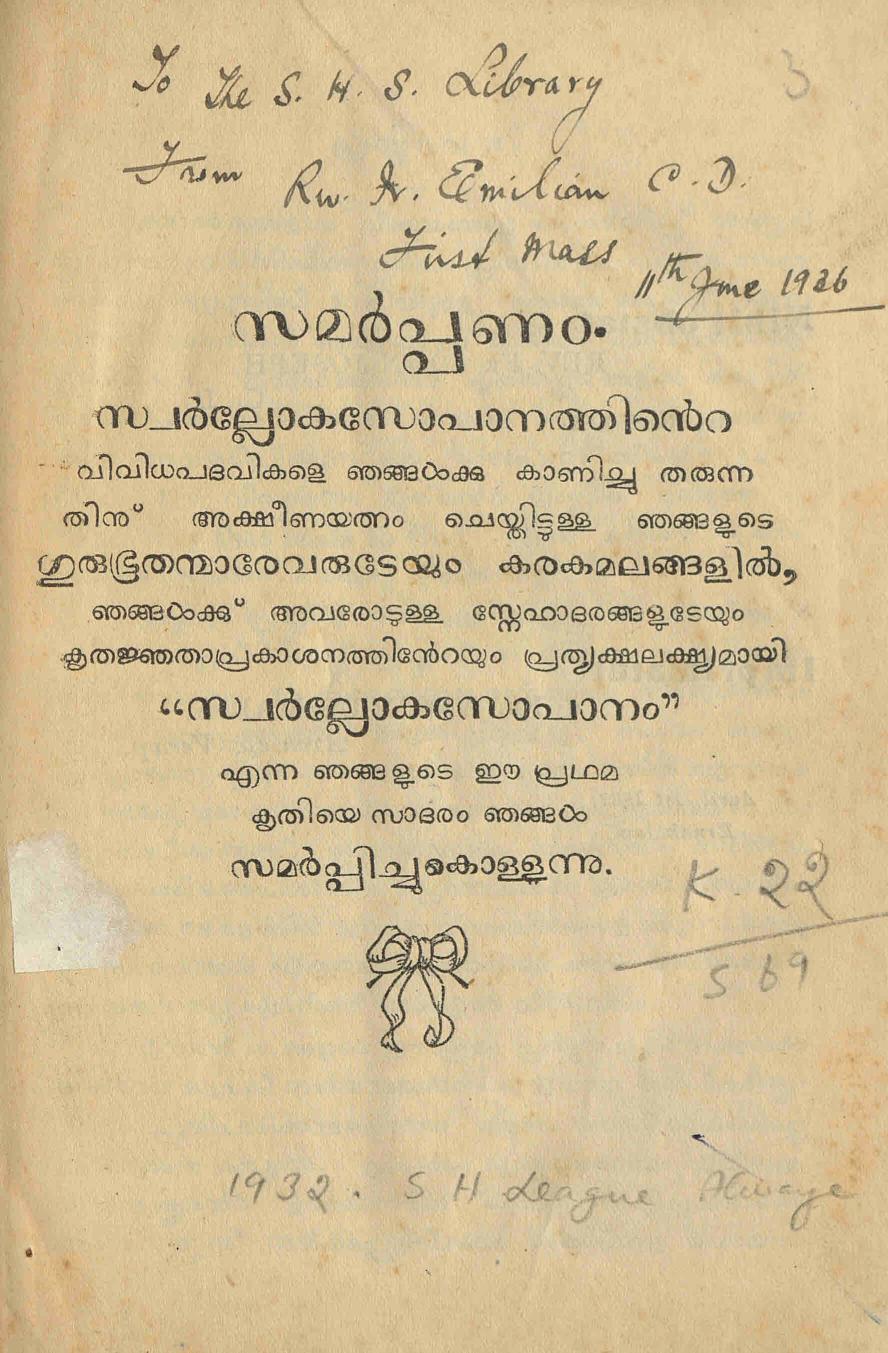 To The S. H. S. Library
From Rev. Fr. Emilian C. D.
First Mass
11th June 1936
സമർപ്പണം.
സ്വർല്ലോകസോപാനത്തിൻെറ
വിവിധപദവികളെ ഞങ്ങൾക്കു കാണിച്ചു തരുന്ന
തിനു് അക്ഷീണയത്നം ചെയ്തിട്ടുള്ള ഞങ്ങളുടെ
ഗുരുഭൂതന്മാരേവരുടേയും കരകമലങ്ങളിൽ,
ഞങ്ങൾക്കു് അവരോടുള്ള സ്നേഹാദരങ്ങളുടേയും
കൃതജ്ഞതാപ്രകാശനത്തിൻേറയും പ്രത്യക്ഷലക്ഷ്യമായി
“സ്വർല്ലോകസോപാനം”
എന്ന ഞങ്ങളുടെ ഈ പ്രഥമ
കൃതിയെ സാദരം ഞങ്ങൾ
സമർപ്പിച്ചുകൊള്ളുന്നു.
K. 22
S 69
1932. S H League Alwaye